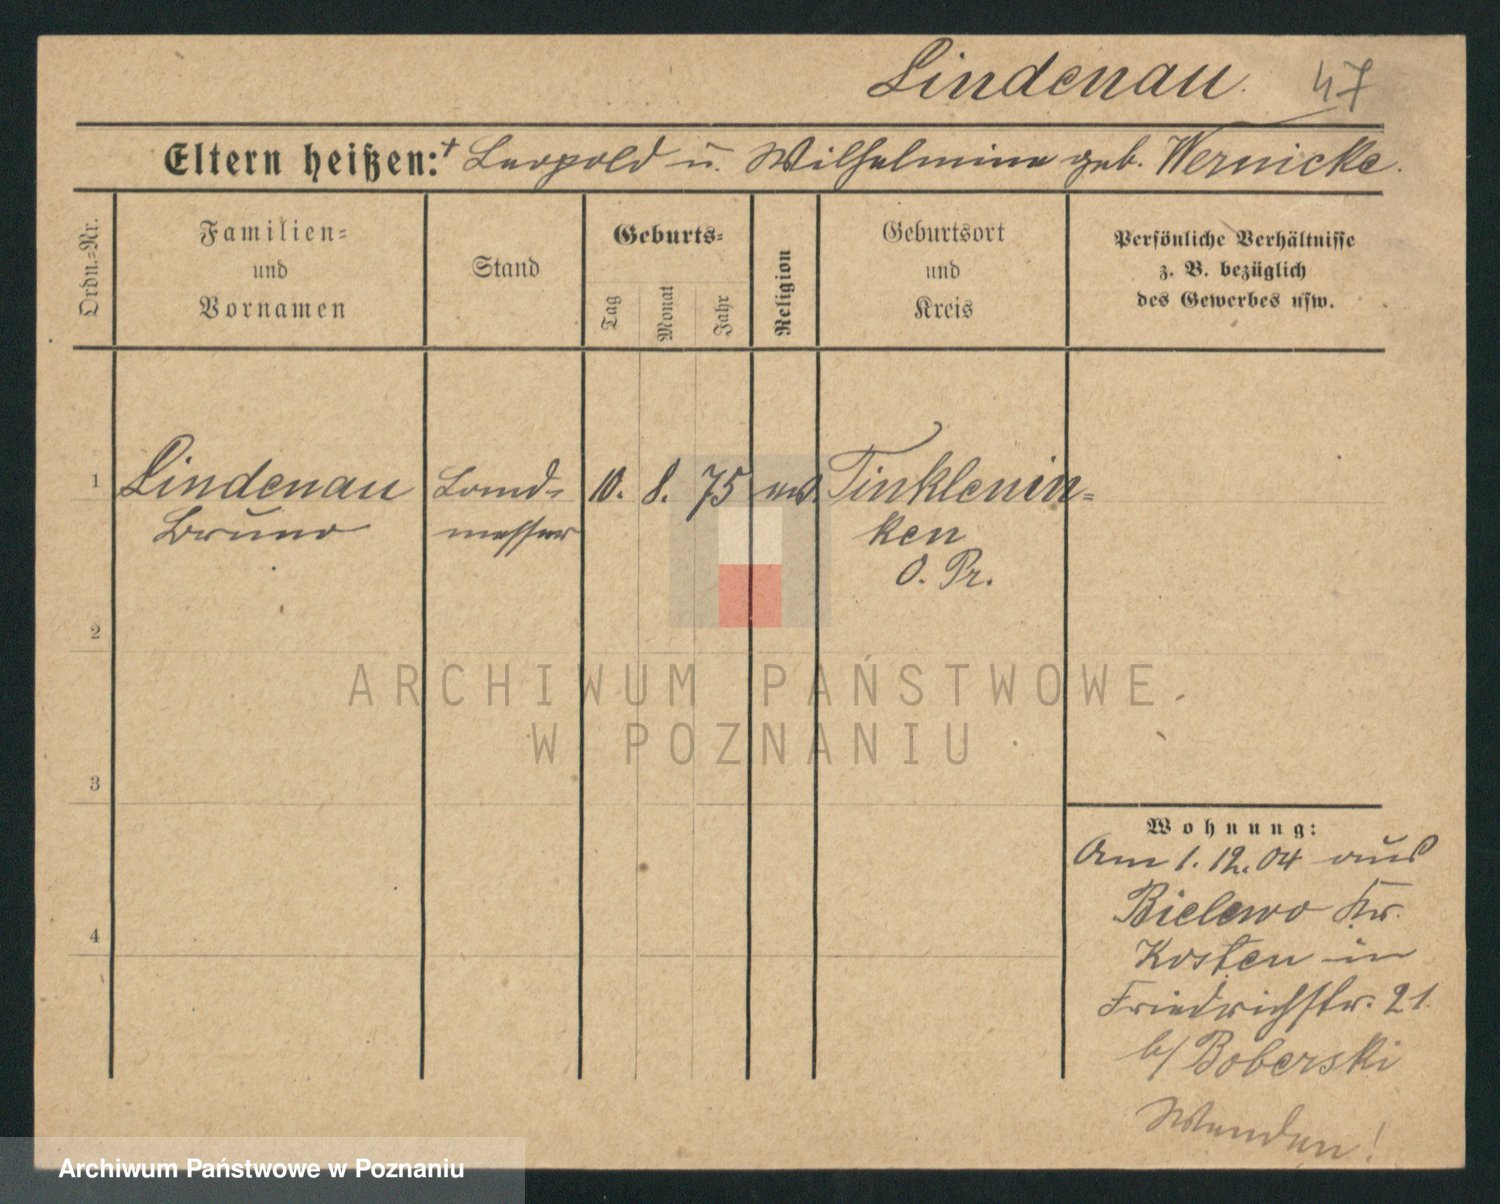 Lindenau. 47
Eltern heißen: † Leopold u. Wilhelmine geb. Wernicke.
Ordn.=Nr.
Familien=
und
Vornamen
Stand
Geburts=
Tag
Monat
Jahr
Religion
Geburtsort
und
Kreis
Persönliche Verhältnisse
z. B. bezüglich
des Gewerbes usw.
1 Lindenau Land= 10. 8. 75 Tinklenin=
Bruno messer ken
O. Pr.
2
3
4
Wohnung:
Am 1. 12. 04 aus
Bielewo Kr.
Kosten in
Friedrichstr. 21.
b/ Boberski
Wenden!
ARCHIWUM PAŃSTWOWE
W POZNANIU
Archiwum Państwowe w Poznaniu